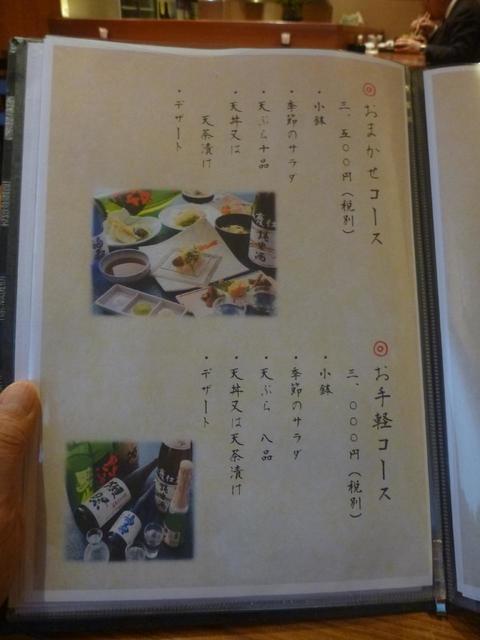 ◎おまかせコース
三、五〇〇円(税別)
・小鉢
・季節のサラダ
・天ぷら十品
・天丼又は
天茶漬け
・デザート
◎お手軽コース
三、〇〇〇円(税別)
・小鉢
・季節のサラダ
・天ぷら 八品
・天丼又は天茶漬け
・デザート
獺祭